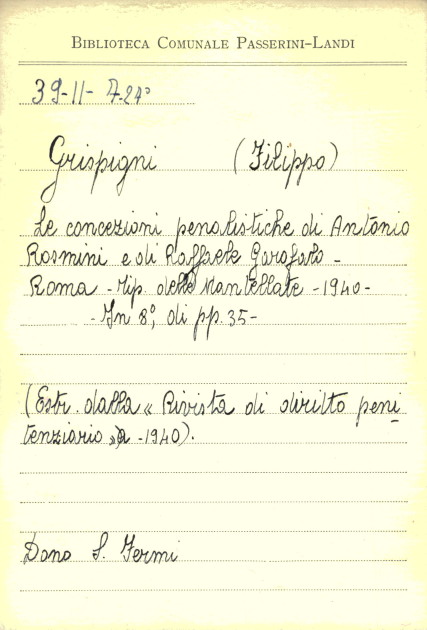 BIBLIOTECA COMUNALE PASSERINI-LANDI
39-11- 7.24°
Grispigni (Filippo)
Le concezioni penalistiche di Antonio
Rosmini e di Raffaele Garofalo -
Roma - Tip. delle Mantellate - 1940 -
- In 8°, di pp. 35 -
(Estr. dalla « Rivista di diritto peni
tenziario » - 1940).
Dono S. Fermi